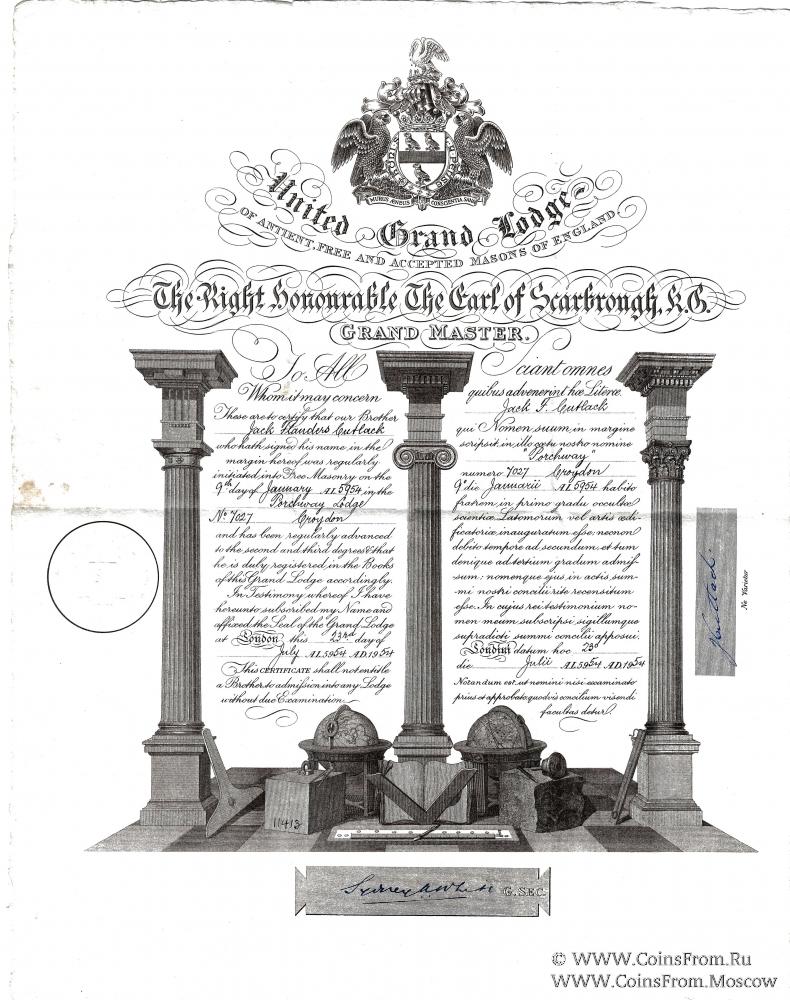 MURUS AENEUS CONSCIENTIA SANA
United Grand Lodge
OF ANTIENT, FREE AND ACCEPTED MASONS OF ENGLAND
The Right Honourable The Earl of Scarbrough, K.G.
GRAND MASTER.
To All
Whom it may concern
These are to certify that our Brother
Jack Flanders Cutlack
who hath signed his name in the
margin hereof was regularly
initiated into Free Masonry on the
9th day of January A.L. 5954 in the
Porchway Lodge
No 7027 Croydon
and has been regularly advanced
to the second and third degrees & that
he is duly registered in the Books
of this Grand Lodge accordingly.
In Testimony whereof I have
hereunto subscribed my Name and
affixed the Seal of the Grand Lodge
at London this 23rd day of
July A.L. 5954 A.D. 1954
This CERTIFICATE shall not entitle
a Brother to admission into any Lodge
without due Examination.
Sciant omnes
quibus advenerint hæ Literæ
Jack F. Cutlack
qui Nomen suum in margine
scripsit, in illo cœtu nostro nomine
"Porchway"
numero 7027 Croydon
9o die Januarii A.L. 5954 habito
fratrem in primo gradu occultæ
scientiæ Latomorum vel artis ædi-
ficatoriæ inauguratum esse: necnon
debito tempore ad secundum, et tum
denique ad tertium gradum admis-
sum: nomenque ejus in actis sum-
mi nostri concilii rite recensitum
esse. In cujus rei testimonium no-
men meum subscripsi sigillumque
supradicti summi concilii apposui.
Londini datum hoc 23o
die Julii A.L. 5954 A.D. 1954
Notandum est, ut nemini nisi examinato
prius et approbato quodvis concilium visendi
facultas detur.
Ne Varietur
11413
Sydney A White G. SEC.
© WWW.CoinsFrom.Ru
WWW.CoinsFrom.Moscow